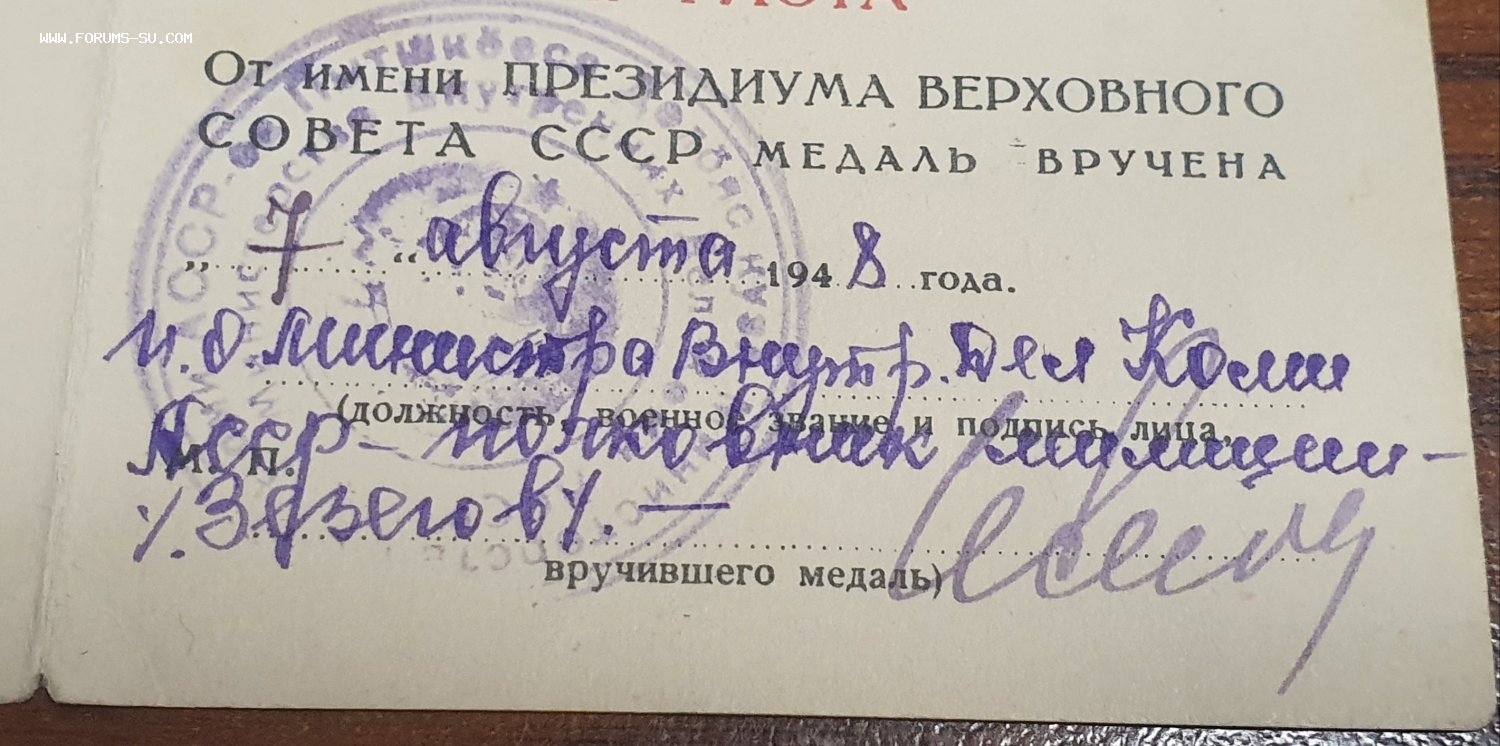 WWW.FORUMS-SU.COM
ФЛОТА
От имени ПРЕЗИДИУМА ВЕРХОВНОГО
СОВЕТА СССР МЕДАЛЬ ВРУЧЕНА
„ 7 “ августа 1948 года.
И.О. Министра Внутр. Дел Коми
(должность, военное звание и подпись лица,
АССР – полковник милиции –
М. П.
/. Зезегов /. —
вручившего медаль)